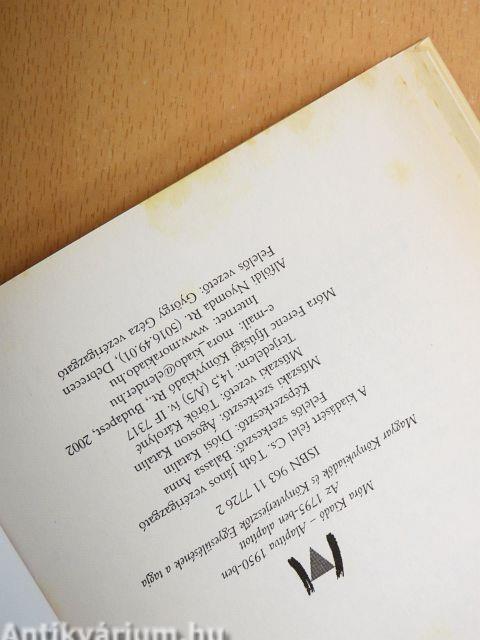 Móra Kiadó – Alapítva 1950-ben
Az 1795-ben alapított
Magyar Könyvkiadók és Könyvterjesztők Egyesülésének a tagja
ISBN 963 11 7726 2
A kiadásért felel Cs. Tóth János vezérigazgató
Felelős szerkesztő: Balassa Anna
Képszerkesztő: Diósi Katalin
Műszaki szerkesztő: Ágoston Katalin
Műszaki vezető: Török Károlyné
Terjedelem: 14,5 (A/5) ív. IF 7317
Móra Ferenc Ifjúsági Könyvkiadó Rt., Budapest, 2002
e-mail: mora_kiado@elender.hu
Internet: www.morakiado.hu
Alföldi Nyomda Rt. (5016.49.01), Debrecen
Felelős vezető: György Géza vezérigazgató
Antikvárium.hu